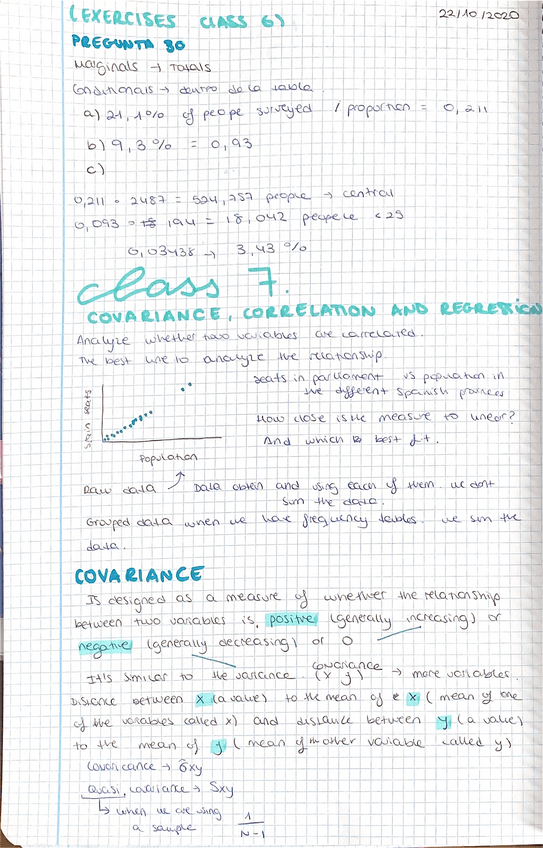 (EXERCISES CLASS 6)
22/10/2020
PREGUNTA 30
Marginals → Totals
Conditionals → dentro de la tabla.
a) 21,1% of peope surveyed / proportion = 0,211
b) 9,3% = 0,93
c)
0,211 · 2487 = 524,757 people → central
0,093 · 194 = 18,042 peopele <25
0,03438 → 3,43 %
class 7.
COVARIANCE, CORRELATION AND REGRESSION
Analyze whether two variables are correlated.
The best line to analyze the relationship.
Seats in parliament vs population in
the different Spanish
How close is the measure to linear?
And which is best fit.
Spain seats
Population
Raw data
Data obtein and using each of them. we don't
sum the data.
Grouped data when we have frequency tables. we sum the
data.
COVARIANCE
Is designed as a measure of whether the relationship
between two variables is, positive (generally increasing) or
negative (generally decreasing) or 0
It is similar to the variance. covariance (x y) → more variables.
Distance between x (a value) to the mean of x (mean of one
of the variables called x) and distance between y (a value)
to the mean of y (mean of other variable called y)
Covariance → σxy
Quasi, covariance → Sxy
↳ when we are using
a sample
1
N-1